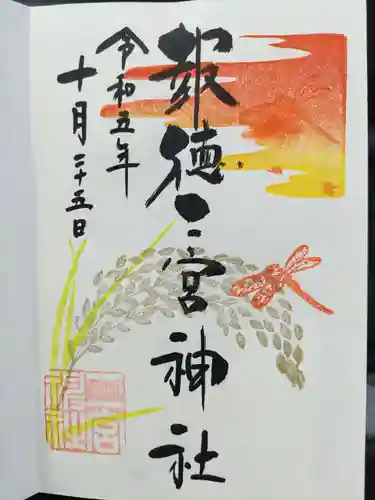 報徳二宮神社
令和五年
十月二十五日